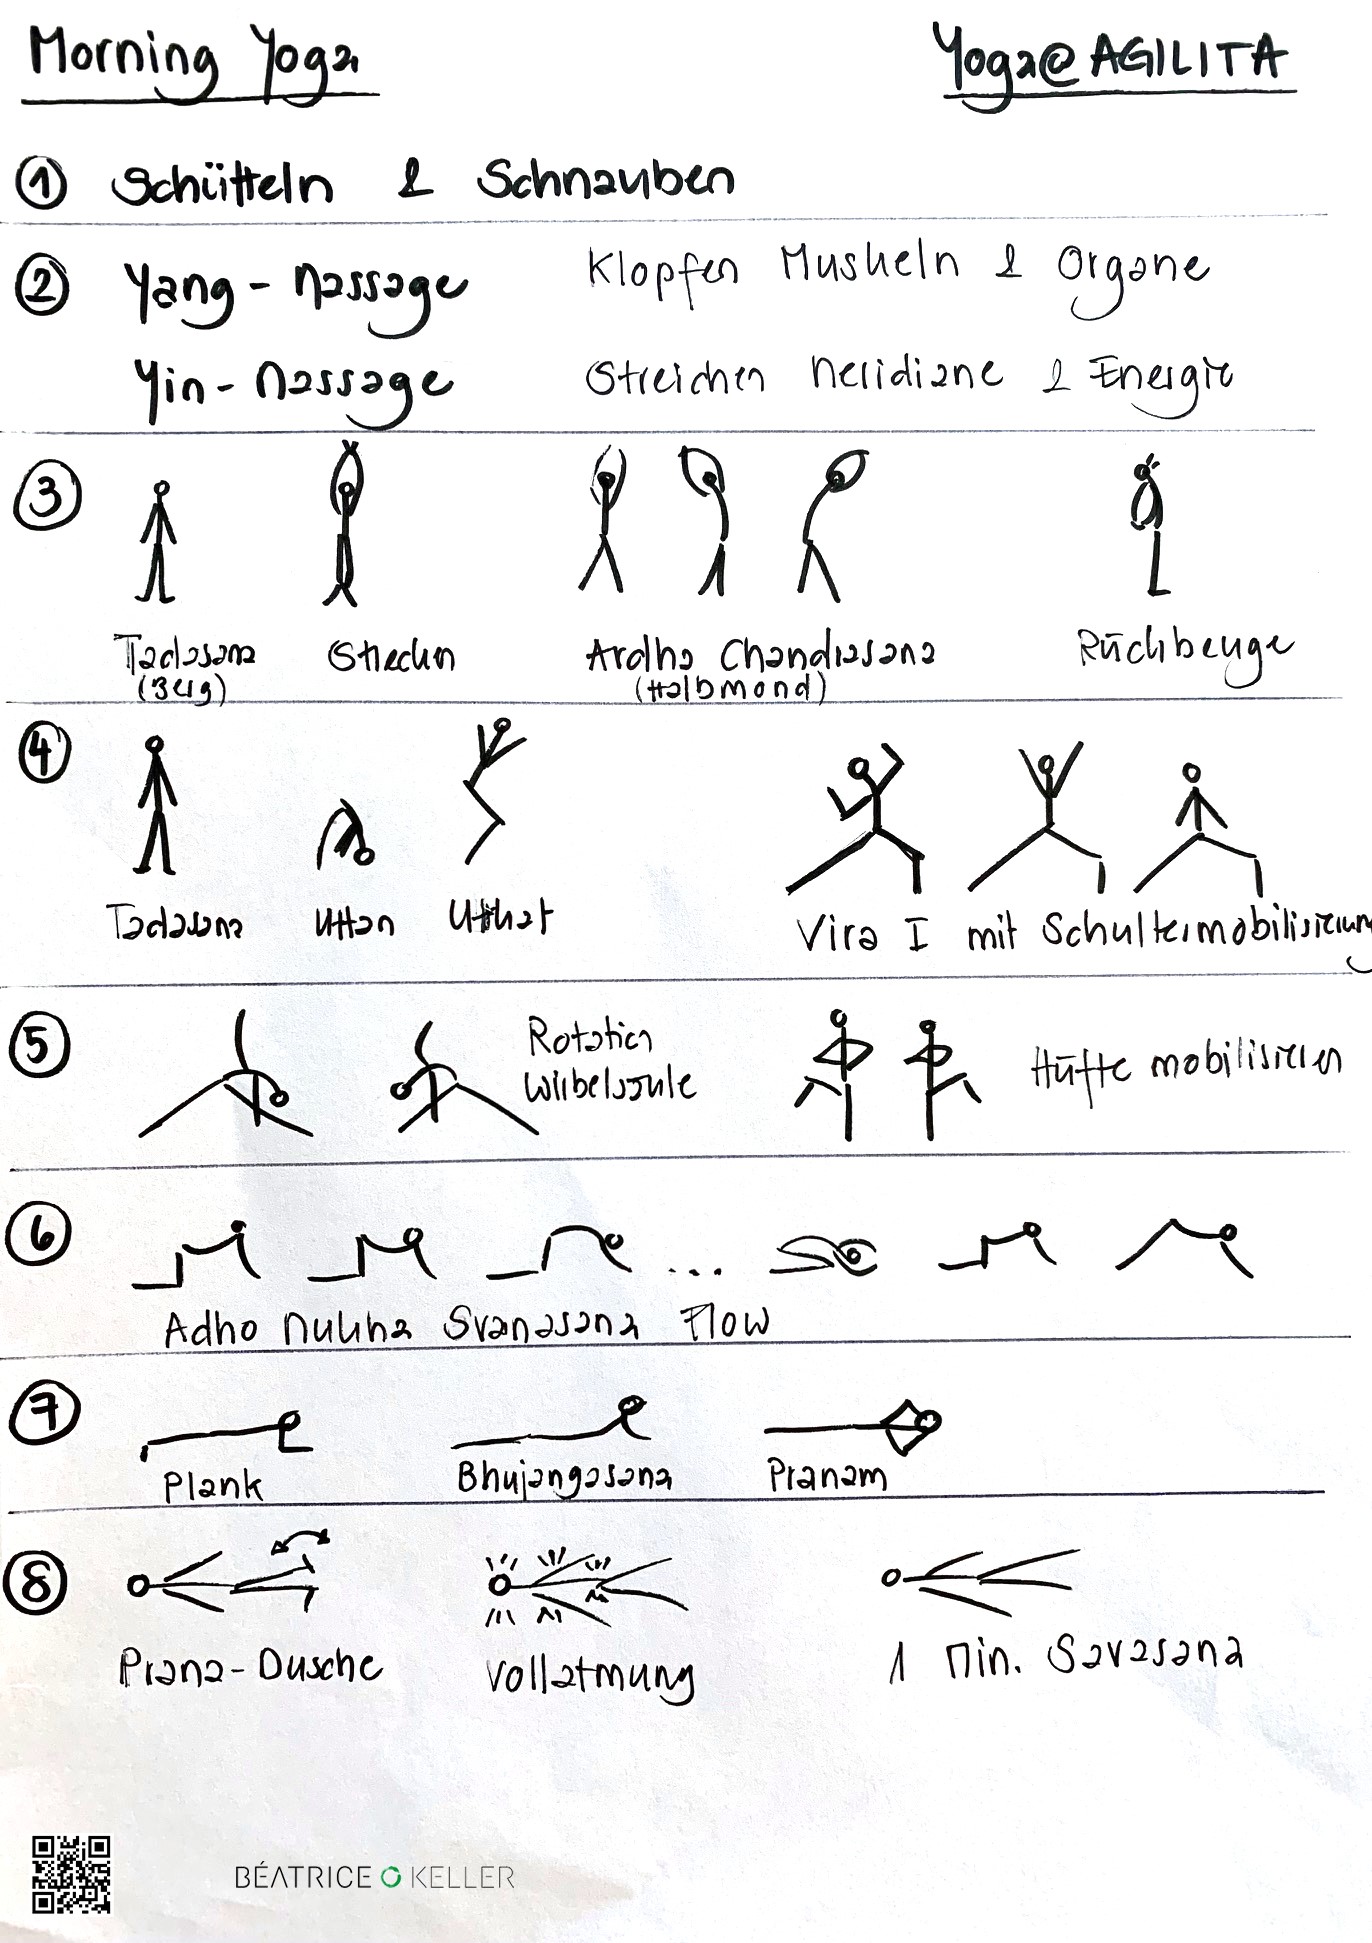 Morning Yoga
Yoga@AGILITA
1 Schütteln & Schnauben
2 Yang-Massage Klopfen Muskeln & Organe
Yin-Massage Streichen Meridiane & Energie
3
Tadasana Strecken Ardha Chandrasana Rückbeuge
(Berg) (Halbmond)
4
Tadasana Uttan Utkat Vira I mit Schultermobilisierung
5
Rotation
Wirbelsäule
Hüfte mobilisieren
6
...
Adho Mukha Svanasana Flow
7
Plank Bhujangasana Pranam
8
Prana-Dusche Vollatmung 1 Min. Savasana
BÉATRICE KELLER